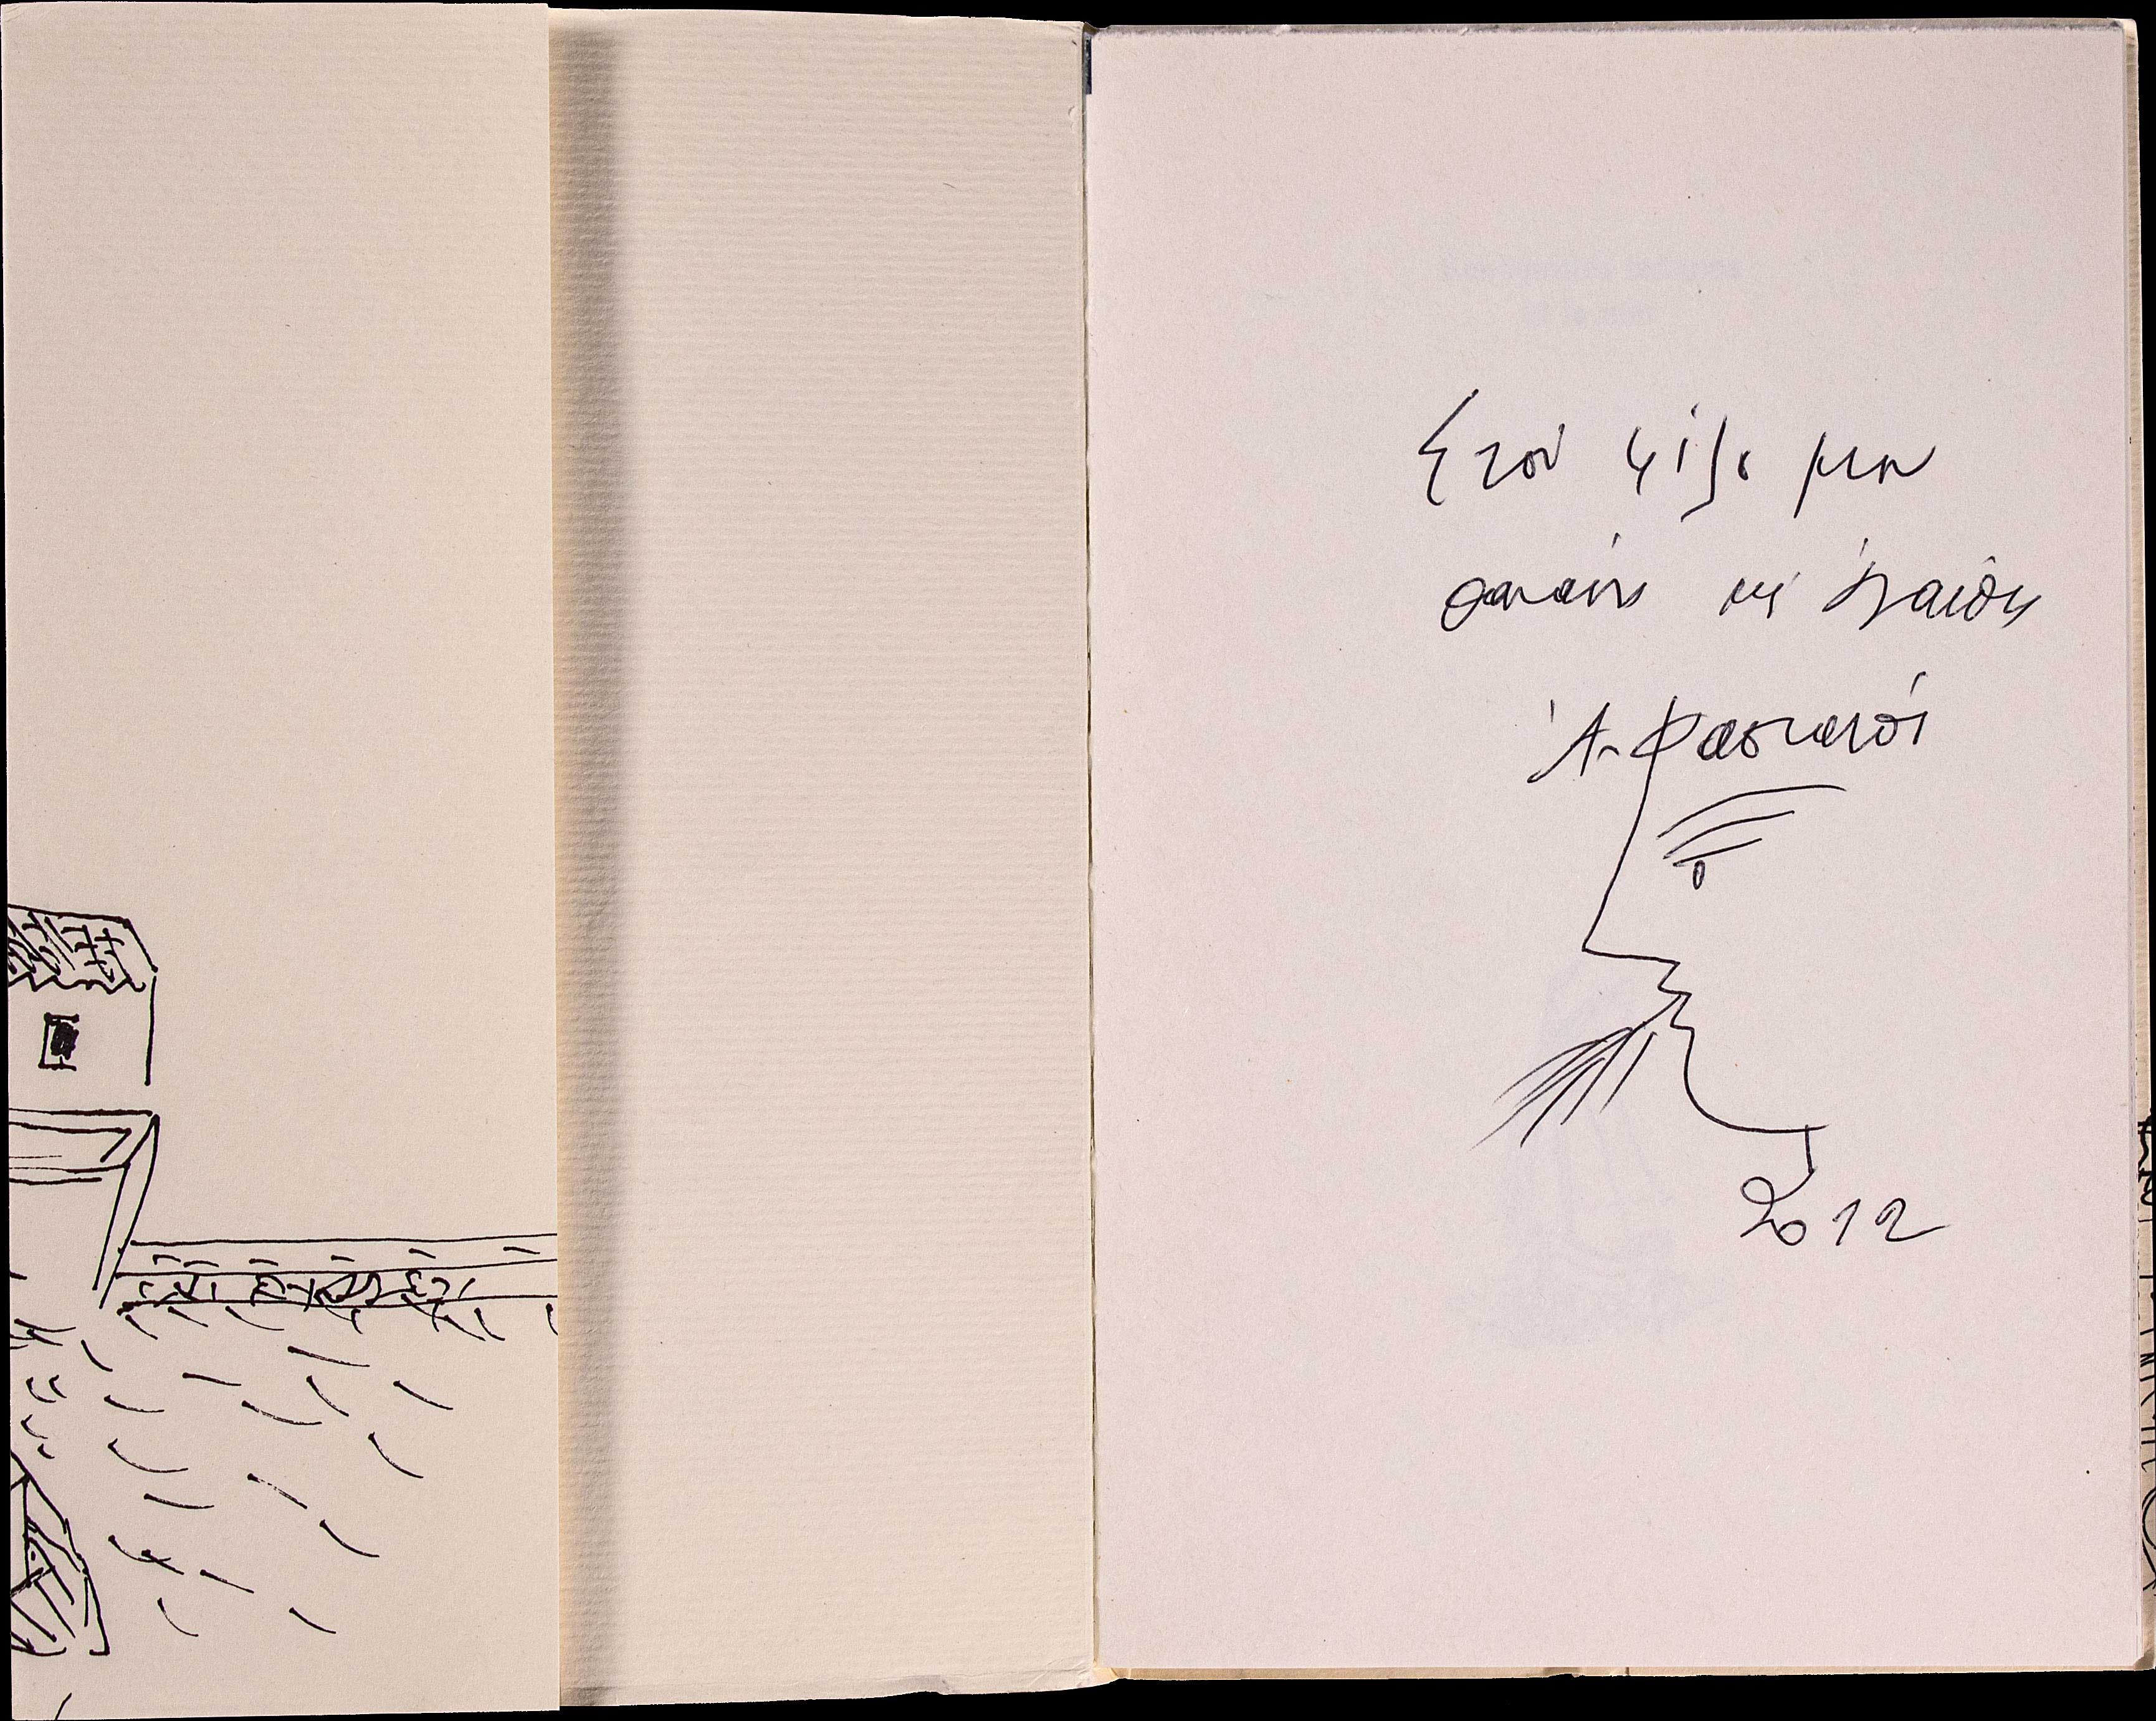 Στον φίλο μου
Θανάση με ἀγάπη
Ἀ. Φασιανός
2012